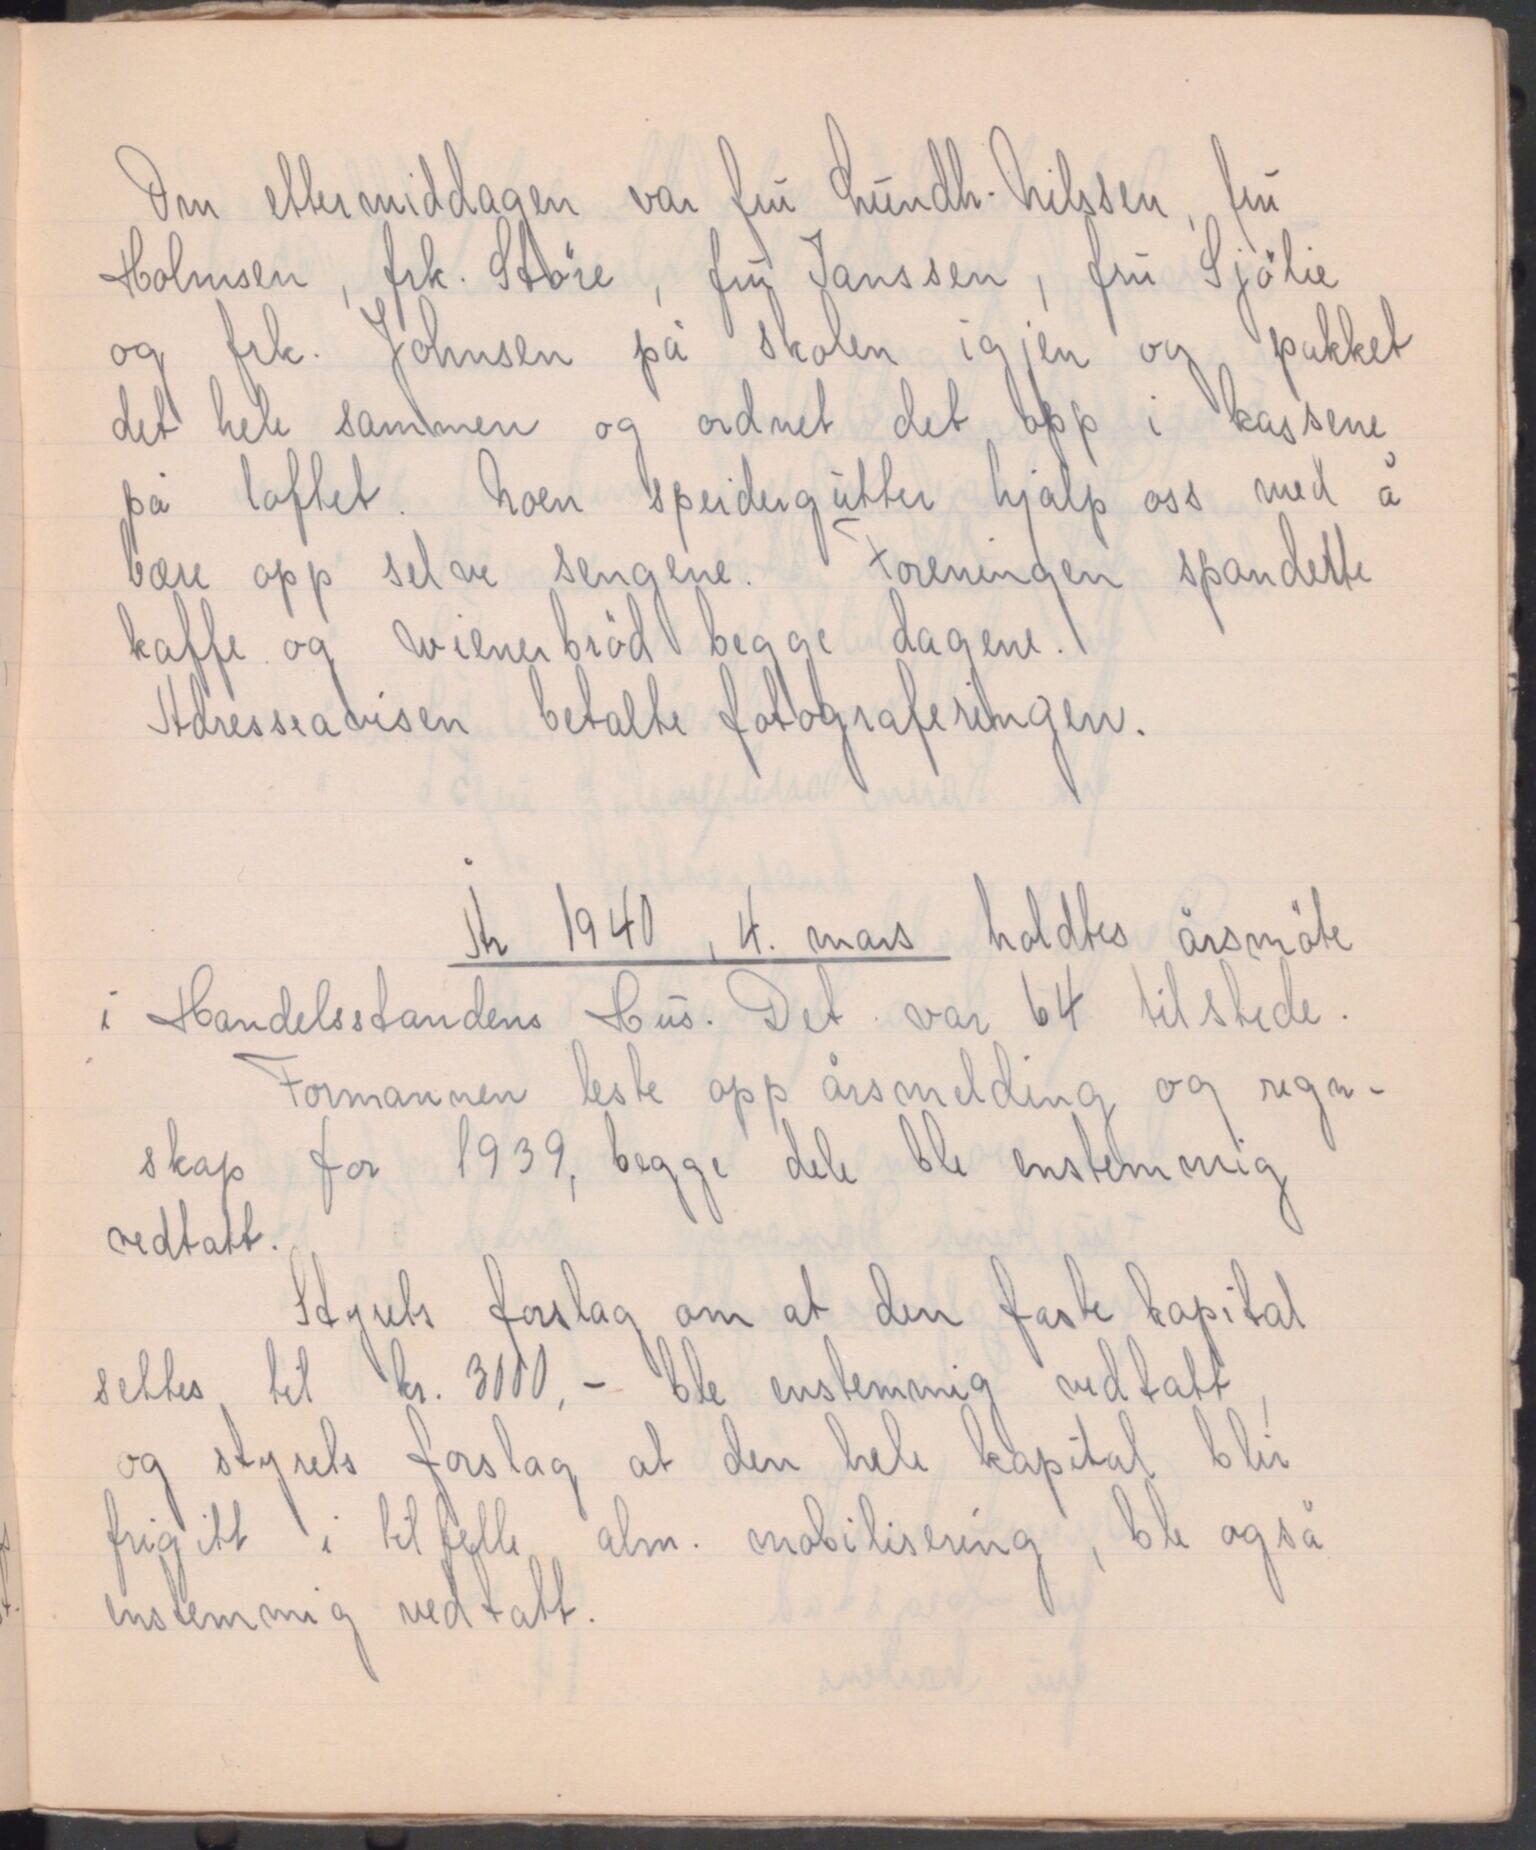 Om ettermiddagen var fru Lundh-Nilssen, fru
Holmsen, frk. Störe, fru Janssen, fru Sjölie
og frk. Johnsen på skolen igjen og pakket
det hele sammen og ordnet det opp i kassene
på loftet. Noen speidergutter hjalp oss med å
bære opp selve sengene. Foreningen spanderte
kaffe og wienerbröd begge dagene.
Adresseavisen betalte fotograferingen.
År 1940, 4. mars holdtes årsmöte
i Handelsstandens Hus. Det var 64 tilstede.
Formannen leste opp årsmelding og regn-
skap for 1939, begge dele ble enstemmig
vedtatt.
Styrets forslag om at den faste kapital
settes til kr. 3000,- ble enstemmig vedtatt,
og styrets forslag at den hele kapital blir
frigitt i tilfelle alm. mobilisering, ble også
enstemmig vedtatt.